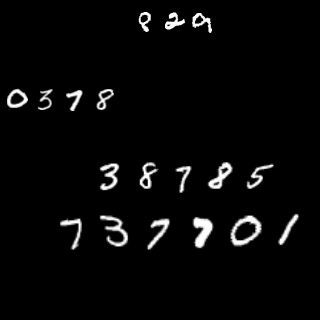 829
0378
38785
737701